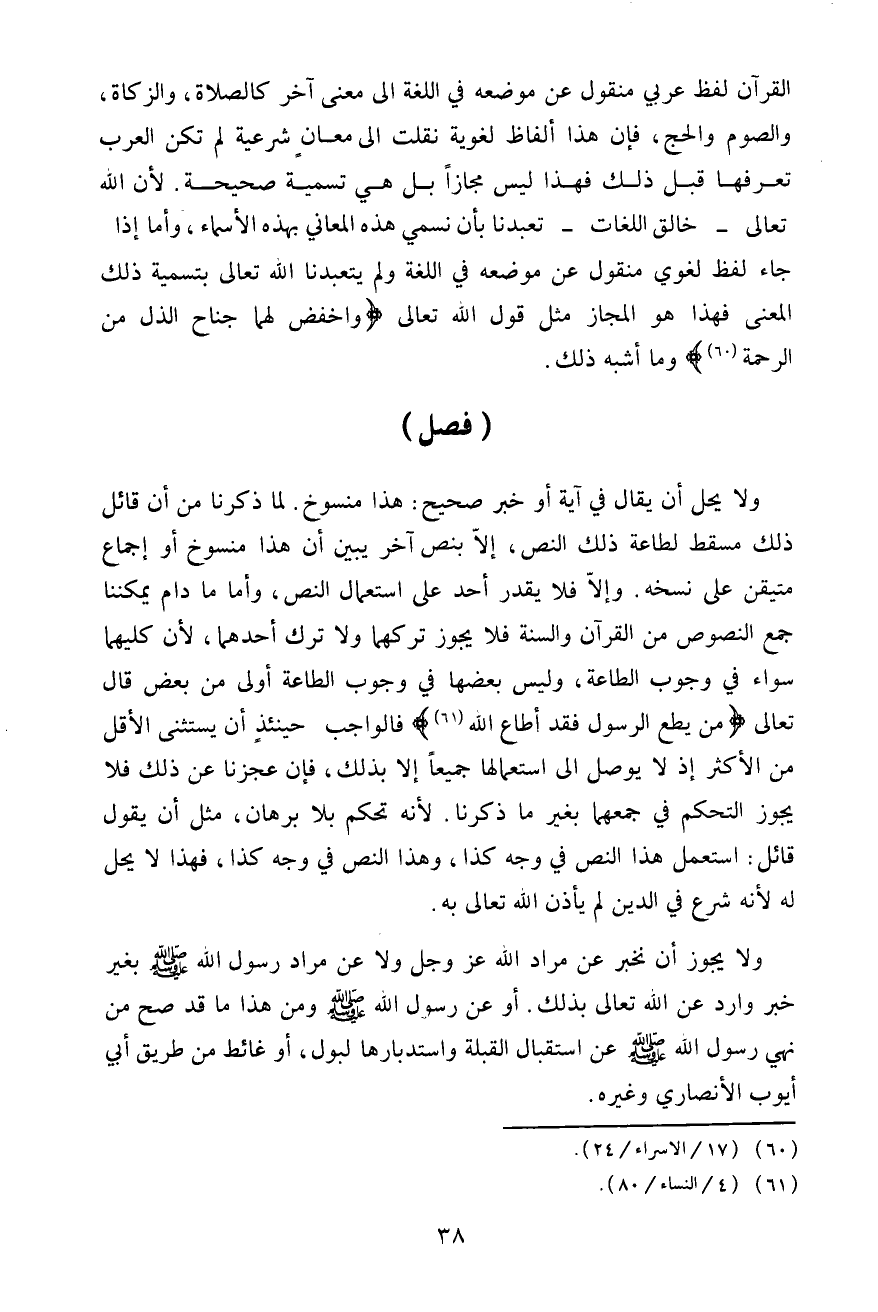 القرآن لفظ عربي منقول عن موضعه في اللغة الى معنى آخر كالصلاة، والزكاة،
والصوم والحج، فإن هذا ألفاظ لغوية نقلت الى معـانٍ شرعية لم تكن العرب
تعـرفهـا قبـل ذلـك فهـذا ليس مجازاً بـل هـي تسميـة صحيحـة. لأن الله
تعالى - خالق اللغات - تعبدنا بأن نسمي هذه المعاني بهذه الأسماء، وأما إذا
جاء لفظ لغوي منقول عن موضعه في اللغة ولم يتعبدنا الله تعالى بتسمية ذلك
المعنى فهذا هو المجاز مثل قول الله تعالى ﴿واخفض لهما جناح الذل من
الرحمة (٦٠)﴾ وما أشبه ذلك.
( فصل )
ولا يحل أن يقال في آية أو خبر صحيح: هذا منسوخ. لما ذكرنا من أن قائل
ذلك مسقط لطاعة ذلك النص، إلاّ بنص آخر يبين أن هذا منسوخ أو إجماع
متيقن على نسخه. وإلاّ فلا يقدر أحد على استعمال النص، وأما ما دام يمكننا
جمع النصوص من القرآن والسنة فلا يجوز تركهما ولا ترك أحدهما، لأن كليهما
سواء في وجوب الطاعة، وليس بعضها في وجوب الطاعة أولى من بعض قال
تعالى ﴿من يطع الرسول فقد أطاع الله (٦١)﴾ فالواجب حينئذٍ أن يستثنى الأقل
من الأكثر إذ لا يوصل الى استعمالها جميعاً إلا بذلك، فإن عجزنا عن ذلك فلا
يجوز التحكم في جمعهما بغير ما ذكرنا. لأنه تحكم بلا برهان، مثل أن يقول
قائل: استعمل هذا النص في وجه كذا، وهذا النص في وجه كذا، فهذا لا يحل
له لأنه شرع في الدين لم يأذن الله تعالى به.
ولا يجوز أن نخبر عن مراد الله عز وجل ولا عن مراد رسول الله ﷺ بغير
خبر وارد عن الله تعالى بذلك. أو عن رسول الله ﷺ ومن هذا ما قد صح من
نهي رسول الله ﷺ عن استقبال القبلة واستدبارها لبول، أو غائط من طريق أبي
أيوب الأنصاري وغيره.
(٦٠) (١٧/الاسراء/٢٤).
(٦١) (٤/النساء/٨٠).
٣٨